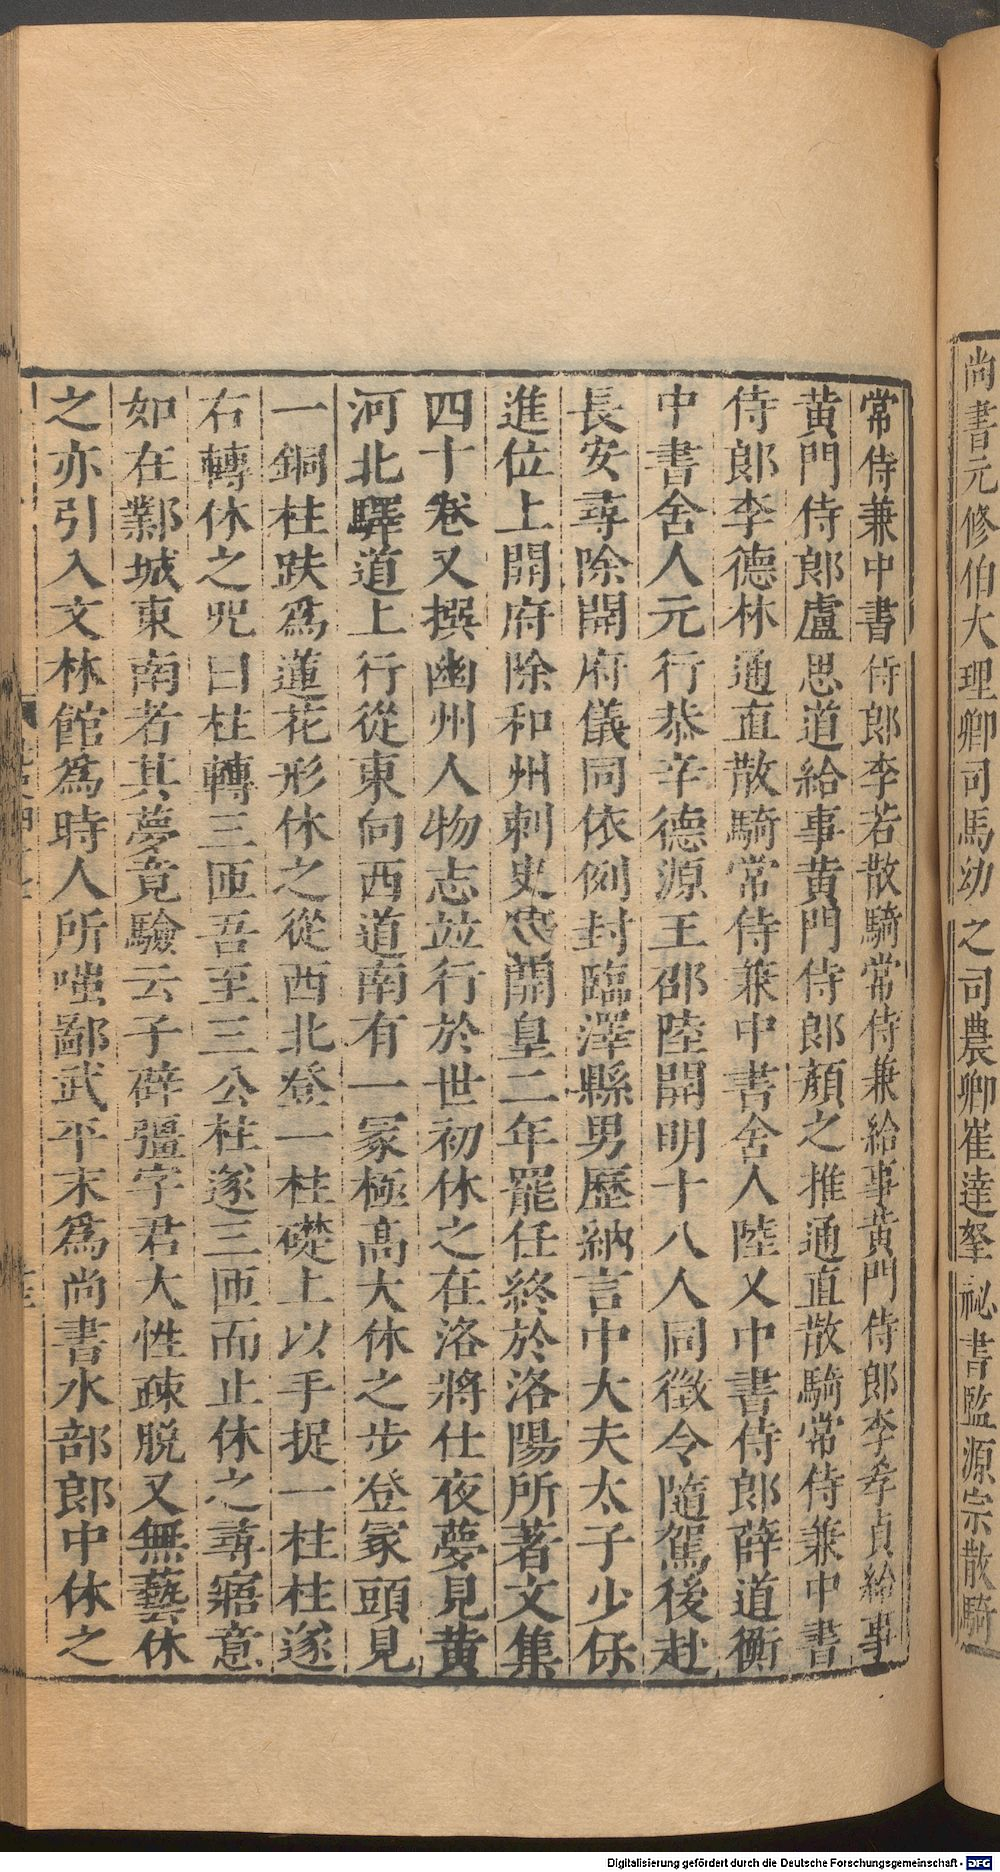 尚書元修伯大理卿司馬幼之司農卿崔達拏祕書監源宗散騎
常侍兼中書侍郎李若散騎常侍兼給事黃門侍郎李孝貞給事
黃門侍郎盧思道給事黃門侍郎顏之推通直散騎常侍兼中書
侍郎李德林通直散騎常侍兼中書舍人陸乂中書侍郎薛道衡
中書舍人元行恭辛德源王邵陸開明十八人同徵令隨駕後赴
長安尋除開府儀同依例封臨澤縣男歷納言中大夫太子少保
進位上開府除和州刺史隋開皇二年罷任終於洛陽所著文集
四十卷又撰幽州人物志竝行於世初休之在洛將仕夜夢見黃
河北驛道上行從東向西道南有一冢極高大休之步登冢頭見
一銅柱趺爲蓮花形休之從西北登一柱礎上以手捉一柱柱遂
右轉休之咒曰柱轉三匝吾至三公柱遂三匝而止休之尋寤意
如在鄴城東南者其夢竟驗云子辟彊字君大性疎脫又無藝休
之亦引入文林館爲時人所嗤鄙武平末爲尚書水部郎中休之
Digitalisierung gefördert durch die Deutsche Forschungsgemeinschaft - DFG